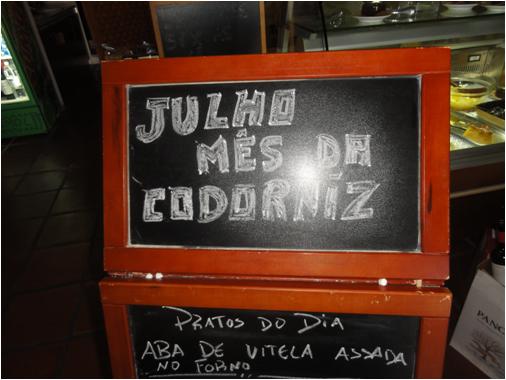 JULHO
MÊS DA
CODORNÍZ
PRATOS DO DIA
ABA DE VITELA ASSADA
NO FORNO
PANC